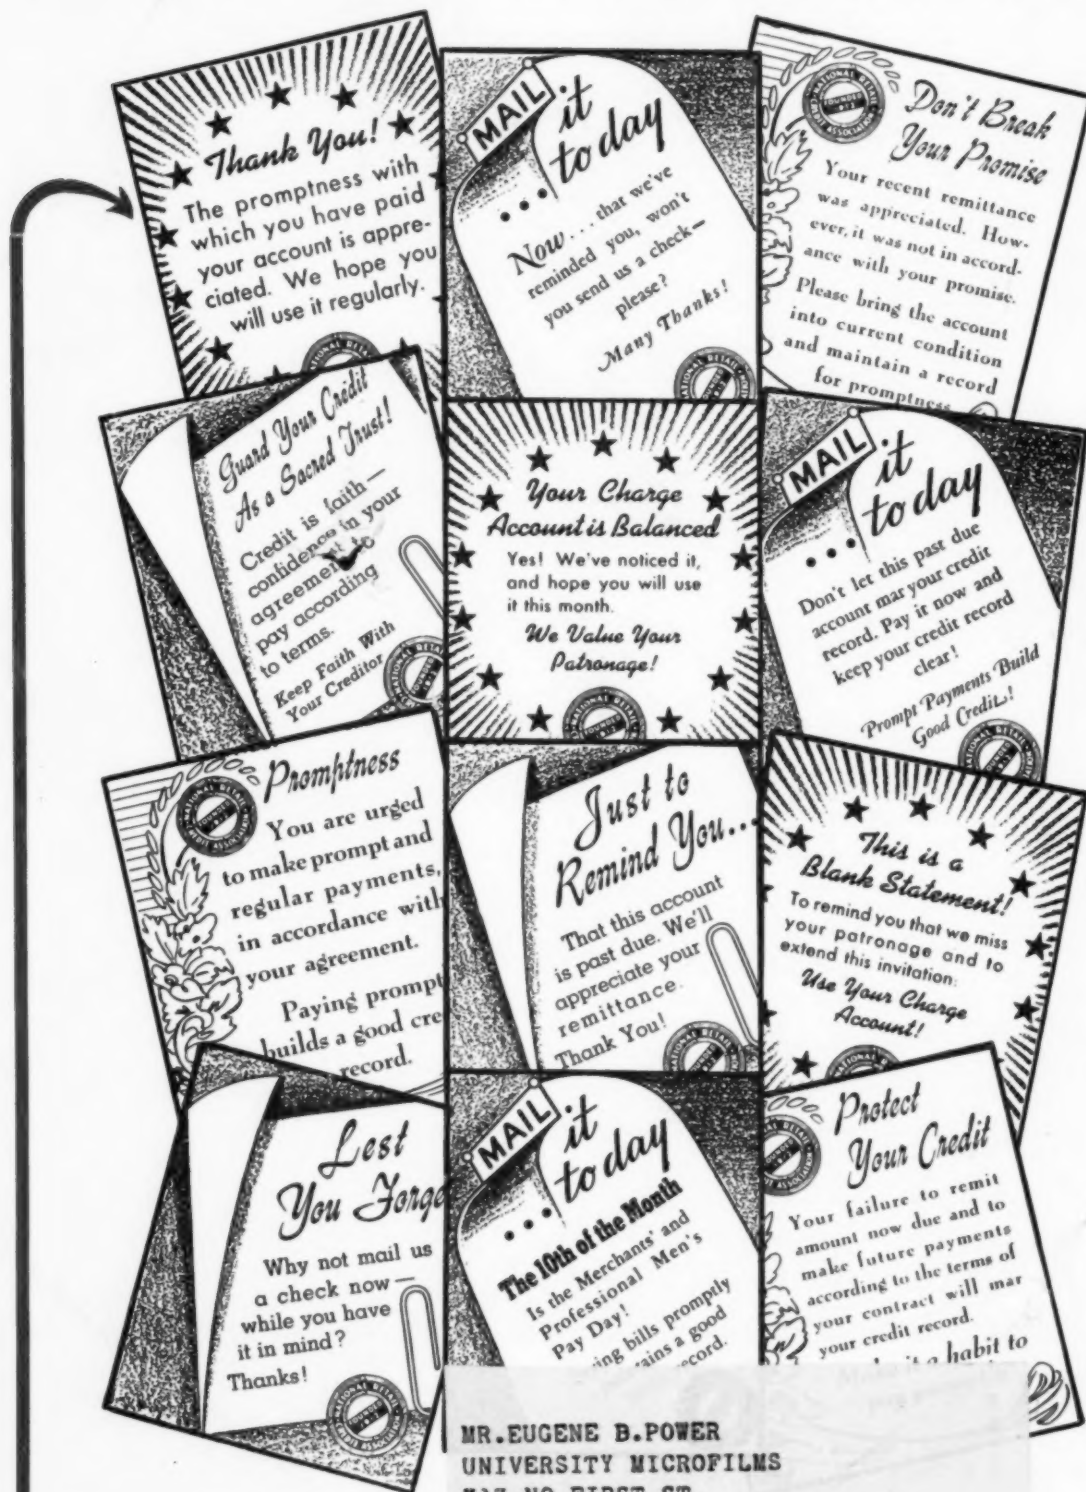 Thank You!
The promptness with
which you have paid
your account is appre-
ciated. We hope you
will use it regularly.
MAIL it
to day
Now... that we've
reminded you, won't
you send us a check—
please?
Many Thanks!
NATIONAL RETAIL
CREDIT ASSOCIATION
FOUNDED
1912
Don't Break
Your Promise
Your recent remittance
was appreciated. How-
ever, it was not in accord-
ance with your promise.
Please bring the account
into current condition
and maintain a record
for promptness
Guard Your Credit
As a Sacred Trust!
Credit is faith—
confidence in your
agreement to
pay according
to terms.
Keep Faith With
Your Creditor
Your Charge
Account is Balanced
Yes! We've noticed it,
and hope you will use
it this month.
We Value Your
Patronage!
MAIL it
to day
Don't let this past due
account mar your credit
record. Pay it now and
keep your credit record
clear!
Prompt Payments Build
Good Credit!
Promptness
You are urged
to make prompt and
regular payments,
in accordance with
your agreement.
Paying prompt
builds a good cre
record.
Just to
Remind You...
That this account
is past due. We'll
appreciate your
remittance.
Thank You!
This is a
Blank Statement!
To remind you that we miss
your patronage and to
extend this invitation:
Use Your Charge
Account!
Lest
You Forge
Why not mail us
a check now—
while you have
it in mind?
Thanks!
MAIL it
to day
The 10th of the Month
Is the Merchants' and
Professional Men's
Pay Day!
ing bills promptly
ains a good
ecord.
Protect
Your Credit
Your failure to remit
amount now due and to
make future payments
according to the terms of
your contract will mar
your credit record.
it a habit to
MR.EUGENE B.POWER
UNIVERSITY MICROFILMS